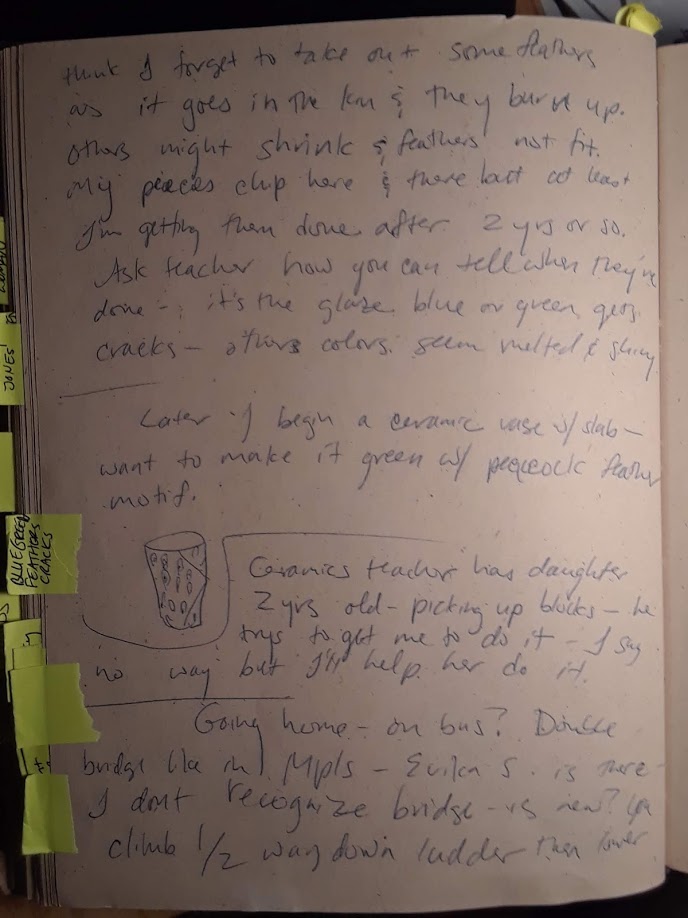 think I forget to take out some feathers
as it goes in the kiln & they burn up.
others might shrink & feathers not fit.
My pieces chip here & there but at least
I'm getting them done after 2 yrs or so.
Ask teacher how you can tell when they're
done - it's the glaze blue or green gets
cracks - others colors seem melted & shiny
Later I begin a ceramic vase w/ slab -
want to make it green w/ peacock feather
motif.
Ceramics teacher has daughter
2 yrs old - picking up blocks - he
trys to get me to do it - I say
no way but I'll help her do it.
Going home - on bus? Double
bridge like in Mpls - S. is there -
I dont recognize bridge - is new?
climb 1/2 way down ladder then lower
JONES'
BLUE GREEN
FEATHERS
CRACKS